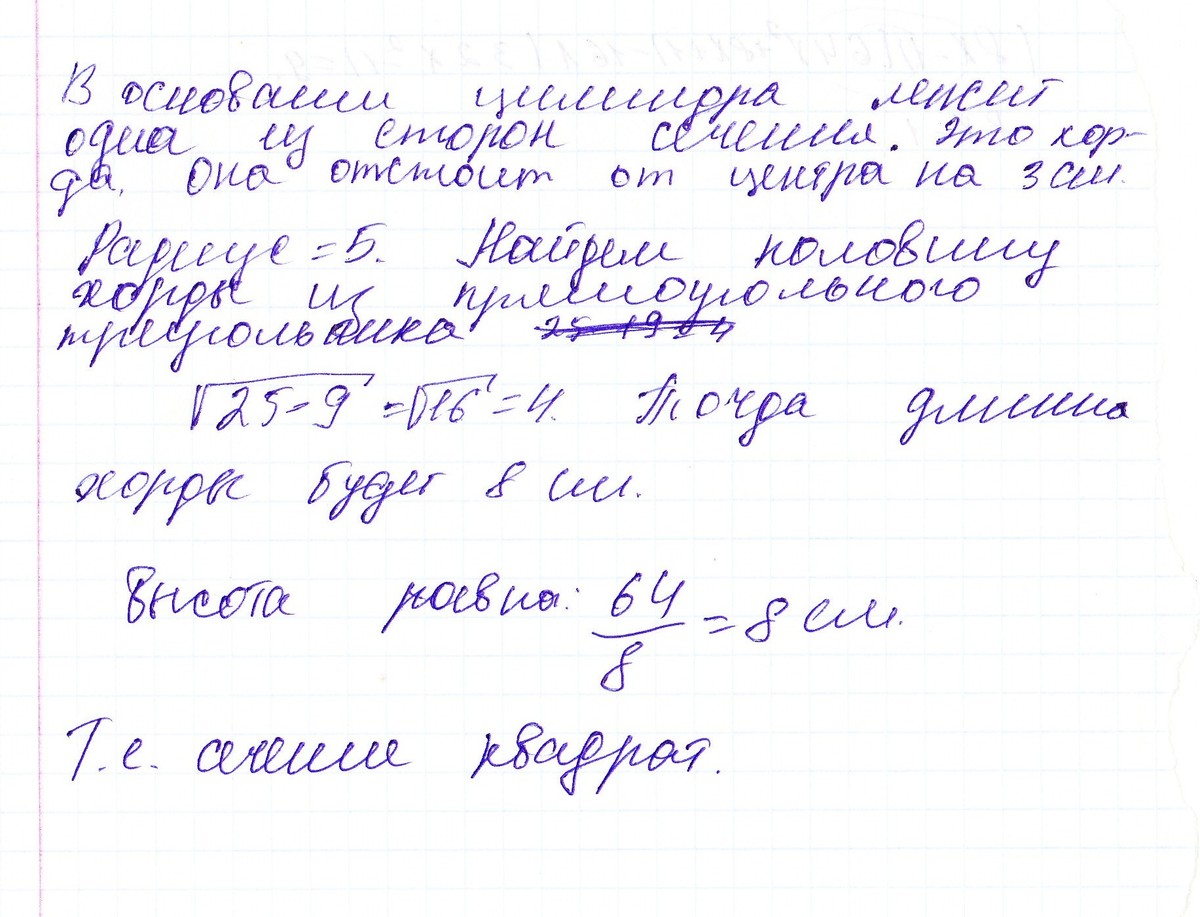 В основании цилиндра лежит
одна из сторон сечения. Это хор-
да. Она отстоит от центра на 3 см.
Радиус = 5. Найдем половину
хорды из прямоугольного
треугольника
√25-9 = √16 = 4. Тогда длинна
хорды будет 8 см.
Высота равна: 64/8 = 8 см.
Т.е. сечение квадрат.